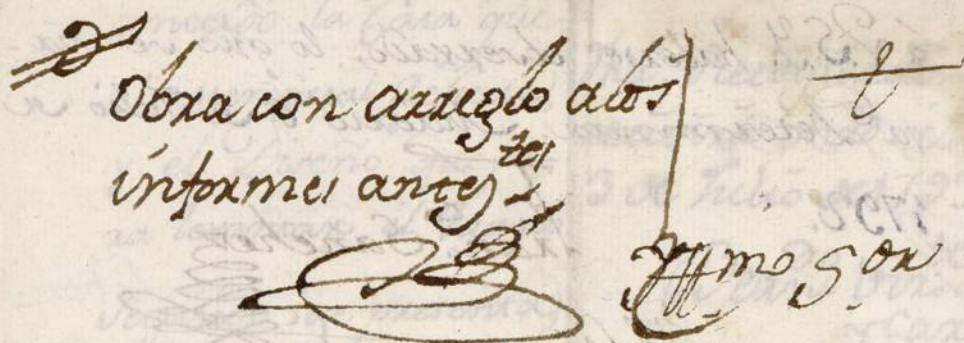 Obra con arreglo alos
informes anteztes
Yllmo Sor